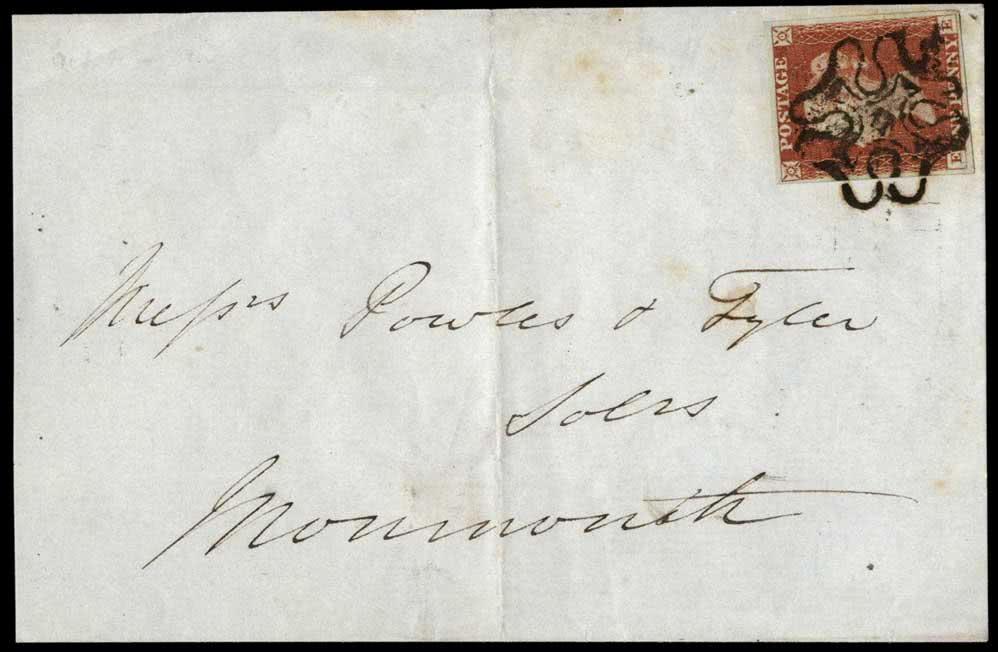 POSTAGE
ONE PENNY
E E
Messrs Powles & Tyler
Solrs
Monmouth